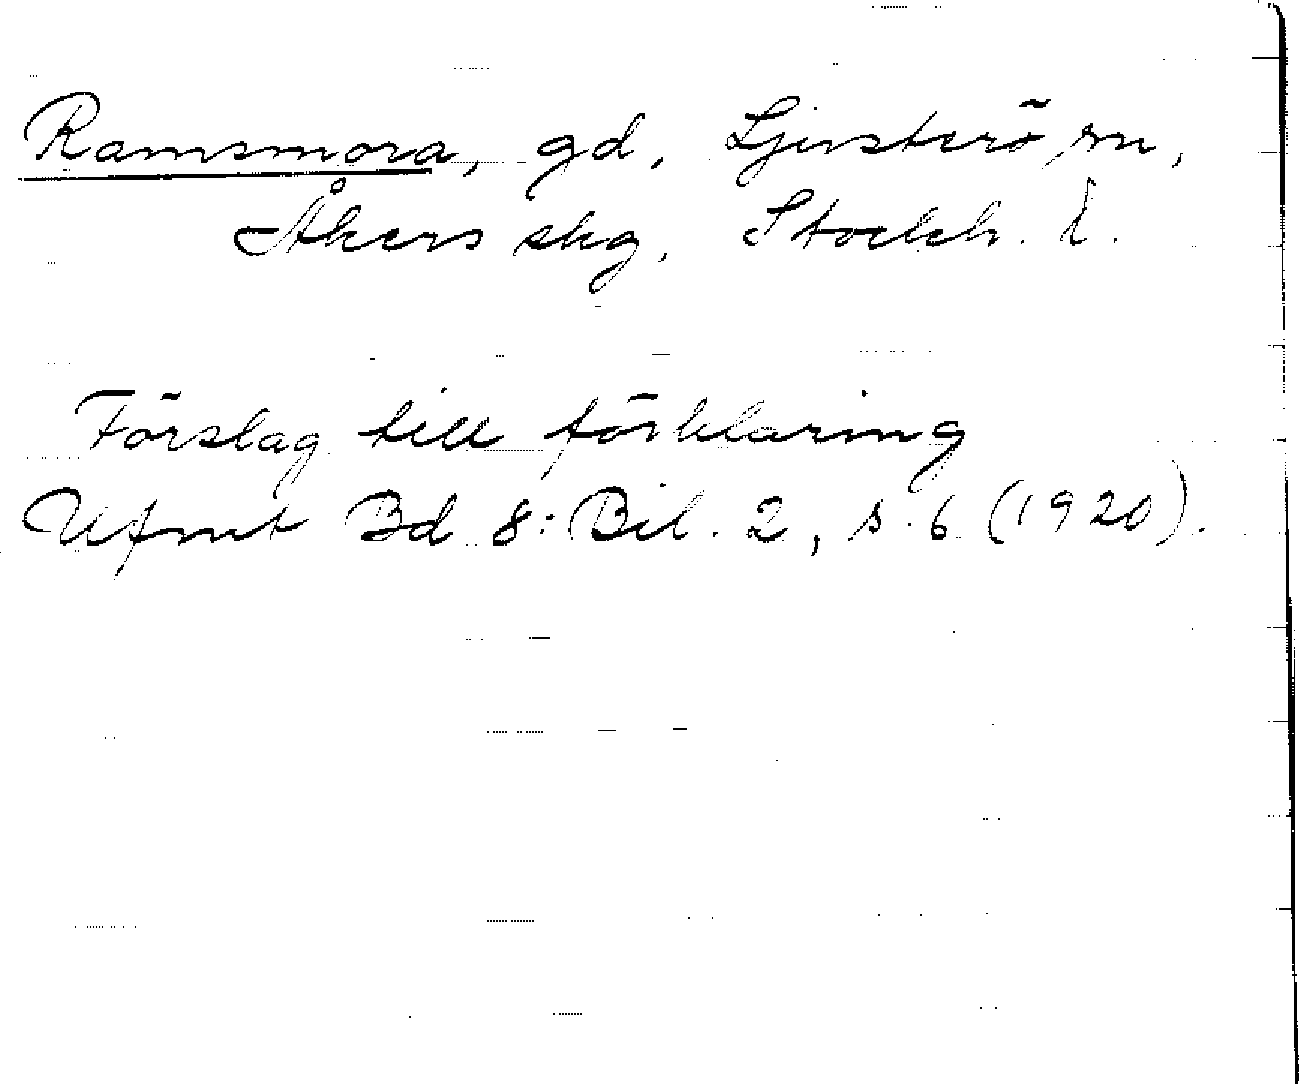 Ramsmora, gd, Ljusterö sn,
Åkers skg, Stockh. l.
Förslag till förklaring
Ufmt Bd 8: Bil. 2, s. 6 (1920).